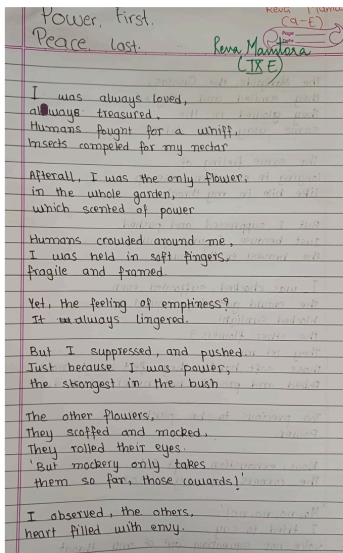 Power, First.
Peace, Last.
Reva Mamtora
(IX E)
(9-E)
Page
Date
I was always loved,
always treasured.
Humans fought for a whiff,
Insects competed for my nectar
Afterall, I was the only flower,
in the whole garden,
which scented of power
Humans crowded around me,
I was held in soft fingers,
fragile and framed.
Yet, the feeling of emptiness?
It always lingered.
But I suppressed, and pushed.
Just because I was power,
the strongest in the bush
The other flowers,
They scoffed and mocked,
They rolled their eyes.
'But mockery only takes
them so far, those cowards!'
I observed, the others,
heart filled with envy.